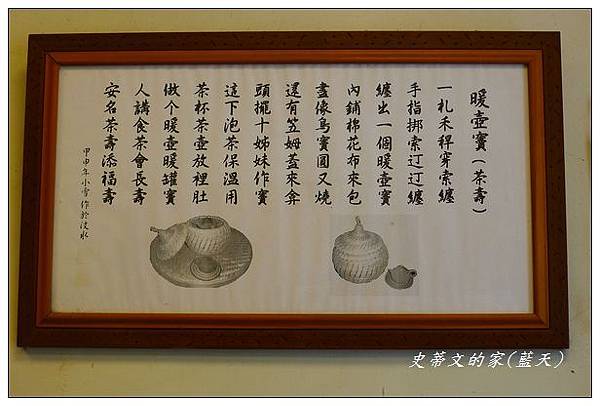 暖壺竇(茶壽)
一札禾稈穿索纏
手指挷索辽辽纏
纏出一個暖壺竇
內鋪棉花布來包
盡像鳥竇圓又燒
還有笠姆蓋來弇
頭擺十姊妹作竇
這下泡茶保溫用
茶杯茶壺放裡肚
做个暖壺暖罐竇
人講食茶會長壽
安名茶壽添福壽
甲申年小雪作於淡水
史蒂文的家(藍天)